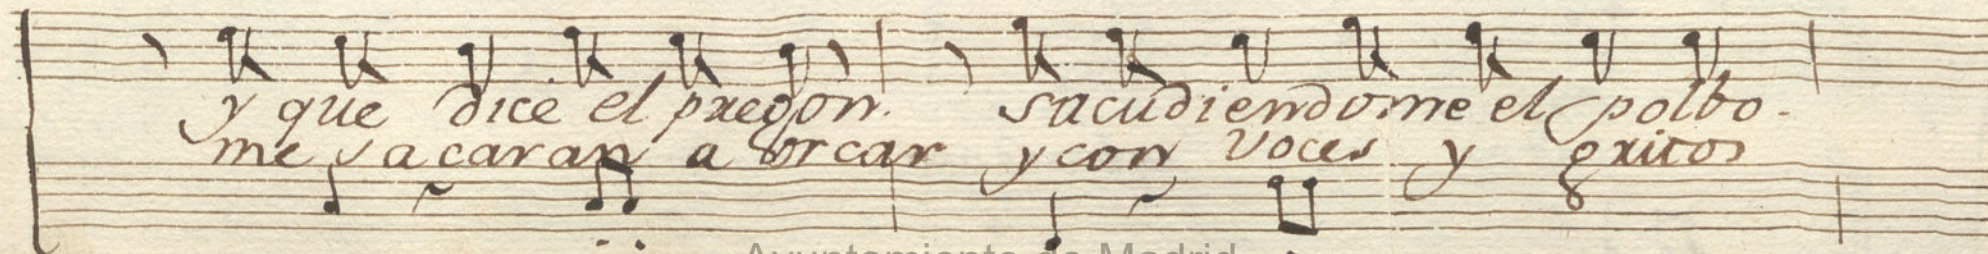 y que dice el pregon. sacudiendome el polbo.
me sacaran a orcar y con voces y gritos
Ayuntamiento de Madrid